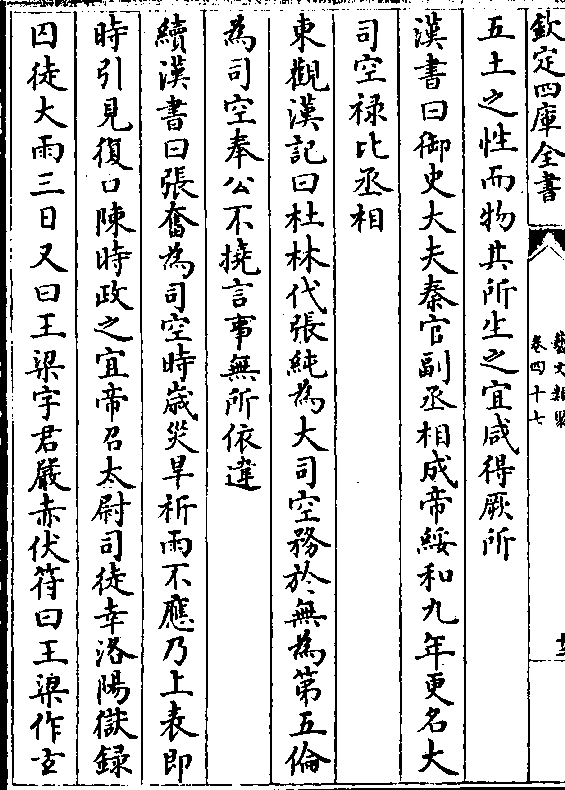 欽定四庫全書
藝文類聚
卷四十七
五土之性而物其所生之宜咸得厥所
漢書曰御史大夫秦官副丞相成帝綏和九年更名大
司空祿比丞相
東觀漢記曰杜林代張純為大司空務於無為第五倫
為司空奉公不撓言事無所依違
續漢書曰張奮為司空時歲災旱祈雨不應乃上表即
時引見復口陳時政之宜帝召太尉司徒幸洛陽獄録
囚徒大雨三日又曰王梁字君嚴赤伏符曰王梁作玄